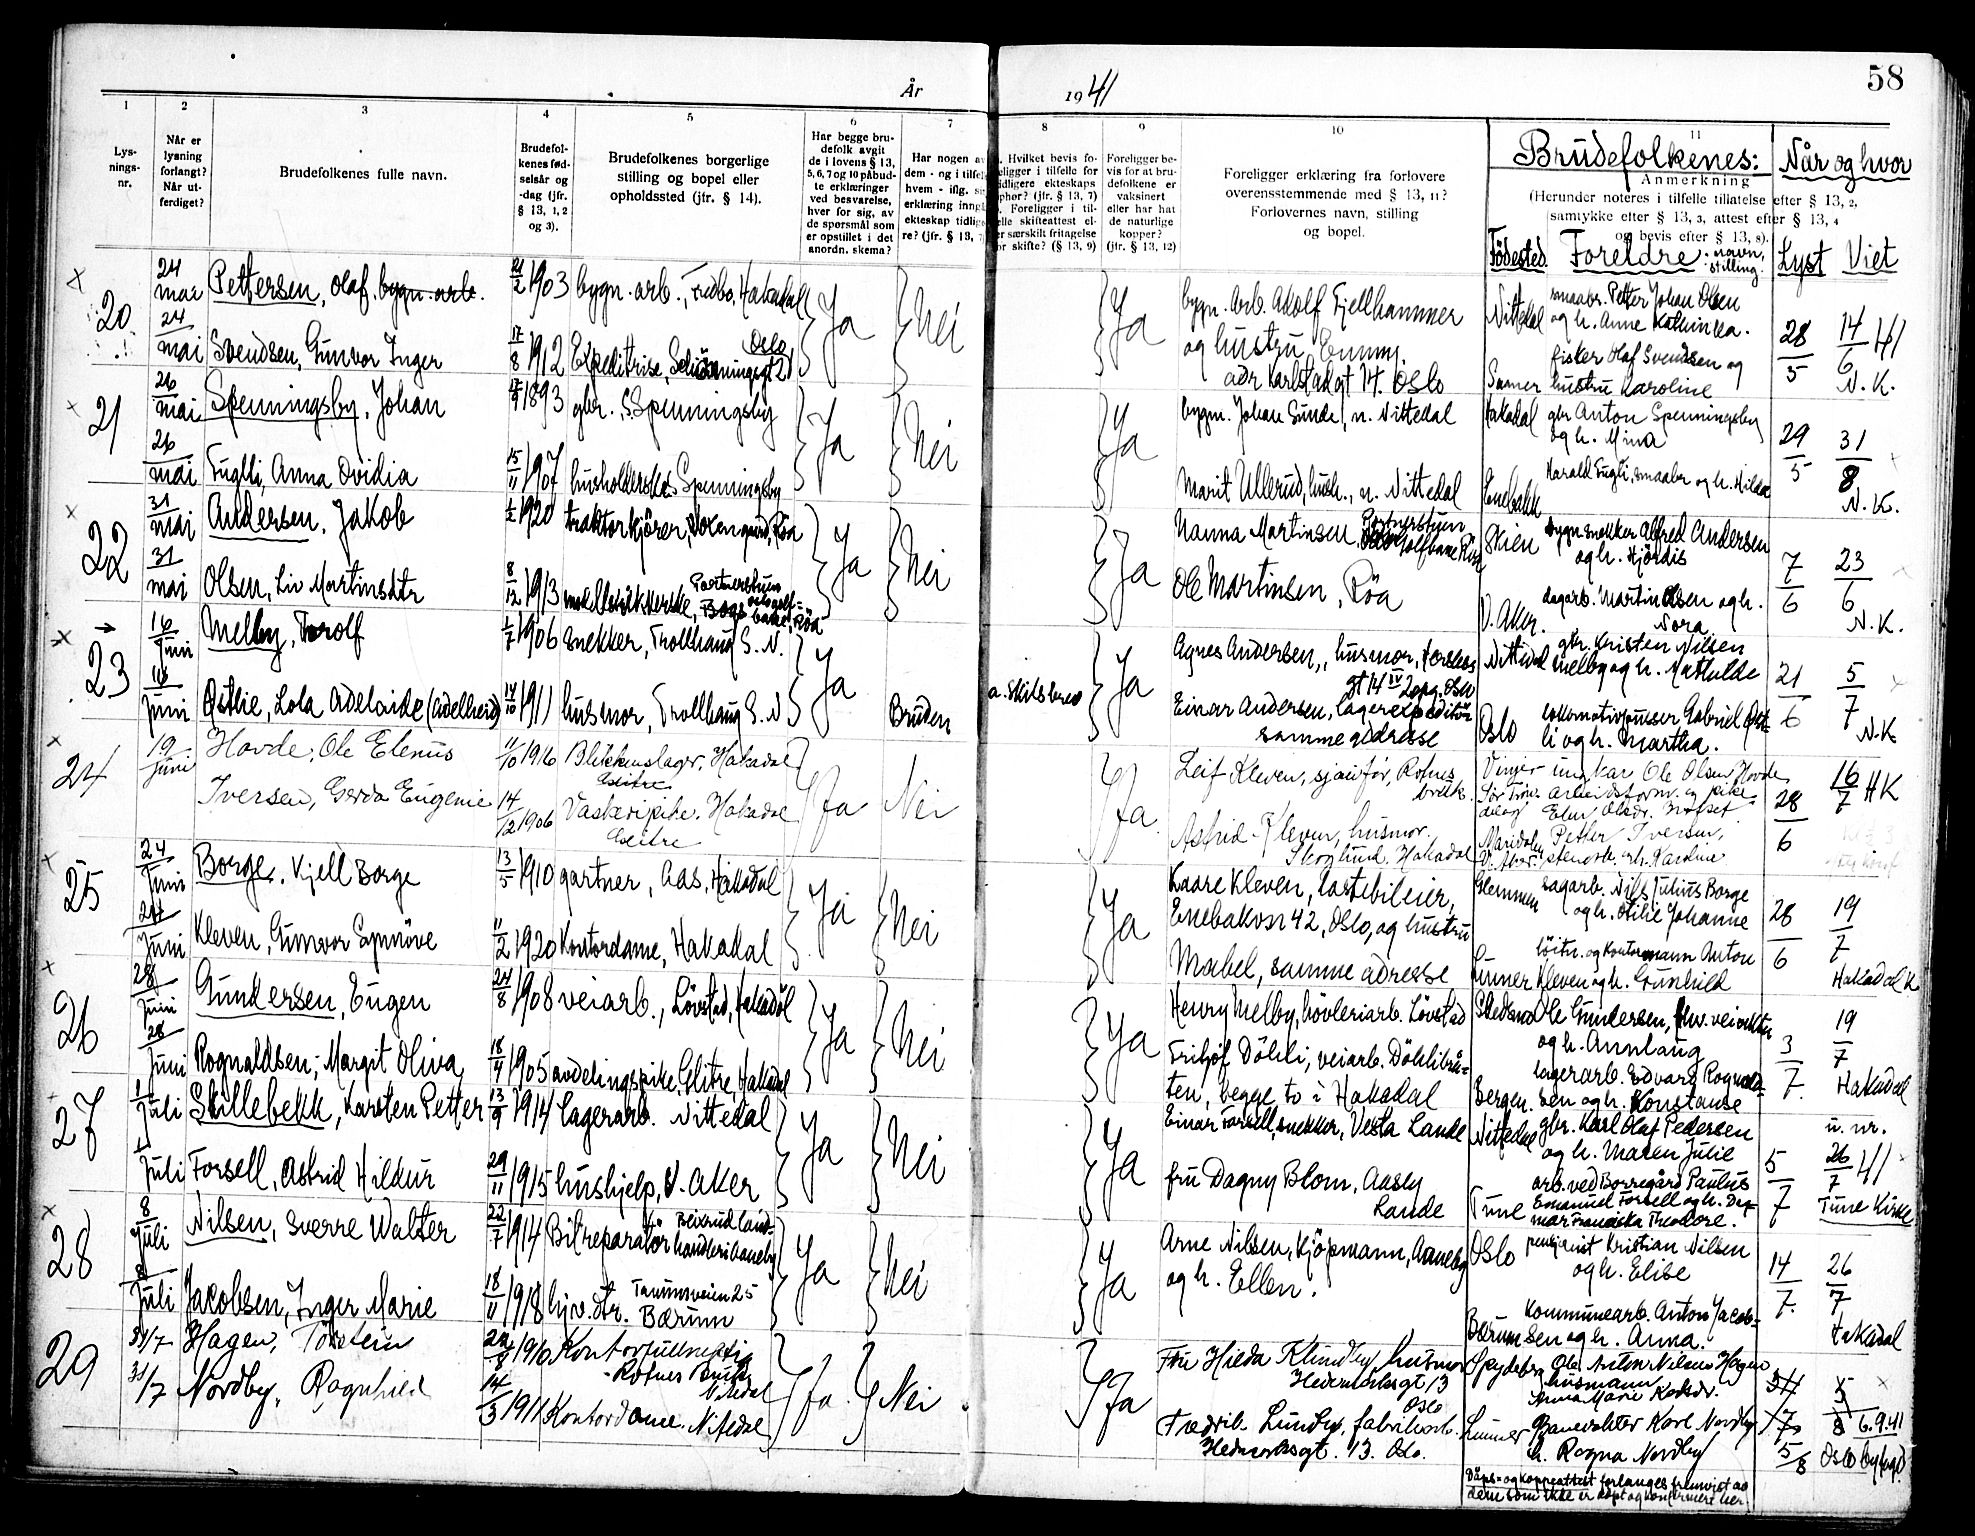 År 1941
58
1 2 3 4 5 6 7 8 9 10 11
Lysningsnr.
Når er lysning forlangt? Når utferdiget?
Brudefolkenes fulle navn.
Brudefolkenes fødselsår og -dag (jfr. § 13, 1, 2 og 3).
Brudefolkenes borgerlige stilling og bopel eller opholdssted (jfr. § 14).
Har begge brudefolk avgit de i lovens § 13, 5, 6, 7 og 10 påbudte erklæringer ved besvarelse, hver for sig, av de spørsmål som er opstillet i det anordn. skema?
Foreligger bevis for at brudefolkene er vaksinert eller har hat de naturlige kopper? (jfr. § 13, 12)
Foreligger erklæring fra forlovere overensstemmende med § 13, 11? Forlovernes navn, stilling og bopel.
Brudefolkenes:
Anmerkning
(Herunder noteres i tilfelle tillatelse efter § 13, 2, samtykke efter § 13, 3, attest efter § 13, 4 og bevis efter § 13, 8).
Födested Foreldre: navn, stilling.
Når og hvor
Lyst Viet
20
24 mai Pettersen, Olaf, bygn. arb. 21/2 1903 bygn. arb., Fredbo, Hakadal Ja Nei Ja
bygn. arb. Adolf Fjellhammer og hustru Emmy. adr Karlstadgt 14. Oslo
Nittedal smaabr. Petter Johan Olsen og h. Anne Kathinka.
28/5 14/6 41 N.K.
24 mai Svendsen, Gunvor Inger 17/8 1912 Expeditrise, Oslo
fisker Olaf Svendsen og hustru Karoline
21
26 mai Spenningsby, Johan 1893 gbr. S. Spenningsby Ja Nei Ja
bygm. Johan Sunde, n. Nittedal
Hakadal gbr Anton Spenningsby og h. Mina
29/5 31/8 N.K.
26 mai Fugli, Anna Ovidia 15/11 1907 husholderske Spenningsby
Marit Ullerud, hush., n. Nittedal
Enebakk Harald Fugli, smaabr og h. Hilda
22
31 mai Andersen, Jakob 1/2 1920 traktorkjörer, Röa Ja Nei Ja
Nanna Martinsen, Portnerstuen Golfbane Röa
Skien bygn. snekker Alfred Andersen og h. Hjördis
7/6 23/6 N.K.
31 mai Olsen, Liv Martinsdtr 8/12 1913 Portnerstuen Oslo golfbane, Röa
Ole Martinsen, Röa
V. Aker. dagarb. Martin Olsen og h. Nora
23
16 juni Melby, Torolf 1/7 1906 snekker, Trollhaug S. N. Ja Ja
Agnes Andersen, husmor, gt 14 IV 2opg. Oslo
Nittedal gbr. Kristen Nilsen Melby og h. Mathilde
21/6 5/7 N.K.
16 juni Østlie, Lola Adelaide (Adelheid) 14/10 1911 husmor, Trollhaug S. N Bruden a. Skilsbrev
Einar Andersen, lagerexpeditör samme adresse
Oslo lokomotivpusser Gabriel Östli og h. Martha.
24
19 juni Hovde, Ole Elenus 11/10 1916 Blikkenslager, Hakadal Elitre Ja Nei Ja
Leif Kleven, sjaifør, Rotnes bruk.
Vinjer ungkar Ole Olsen Hovde
28/6 16/7 HK
Iversen, Gerda Eugenie 14/12 1906 Vaskeripike. Hakadal Elitre
Astrid Kleven, husmor. Skoglund, Hakadal
Maridalen V. Aker Petter Iversen, og h. Karoline
25
24 Juni Borge, Kjell Borge 13/5 1910 gartner, Aas, Hakadal Ja Nei Ja
Kaare Kleven, lastebileier, Enebakvn 42, Oslo, og hustru
Glemmen sagarb. Nils Julius Borge og h. Otilie Johanne
28/6 19/7 Hakadal K
24 Juni Kleven, Gunvor Synnöve 11/2 1920 Kontordame, Hakadal
Mabel, samme adresse
Lunner löitn. og kontormann Anton Kleven og h. Gunhild
26
28 juni Gundersen, Eugen 24/8 1908 veiarb., Lövstad, Hakadal Ja Nei Ja
Henry Melby, hövleriarb. Lövstad
Skedsmo Ole Gundersen, og h. Annlaug
3/7 19/7 Hakadal
28 juni Rognaldsen, Margit Oliva 18/4 1905 avdelingspike, Glitre, Hakadal
Fritjof Döhli, veiarb. Döhlibråten, begge to i Hakadal
Bergen. lagerarb. Edvard Rognaldsen og h. Konstanse
u. nr.
27
1 juli Skillebekk, Karsten Petter 13/9 1914 lagerarb. Nittedal Ja Nei Ja
Einar Forsell, snekker, Vesta Lande
Nittedal gbr. Karl Olaf Pedersen og h. Maren Julie
5/7 26/7 41 Tune Kirke
1 juli Forsell, Astrid Hildur 29/11 1915 hushjelp, V. Aker
fru Dagny Blom, Aasly Lande
Tune arb. ved Borregård Paulus Emanuel Forsell og h. Dagmar Franciska Theodore.
28
8 juli Nilsen, Sverre Walter 22/7 1914 Bilreparatör Ja Nei Ja
Arne Nilsen, kjöpmann, Aaneby og h. Ellen.
Oslo pensjonist Kristian Nilsen og h. Elise
14/7. 26/7 Hakadal
8 juli Jakobsen, Inger Marie 18/11 1918 hjv. dtr. Tanumsveien 25 Bærum
Bærum kommunearb. Anton Jacobsen og h. Anna.
29
31/7 Hagen, Torstein 1910 Kontorfullmektig Rotnes Bruk Nitedal Ja Nei Ja
Fru Hilda Klundby, husmor Hedemarksgt 13 Oslo
Spydeberg Ole Anton Nilsen Hagen husmann
31/7 5/8 6.9.41 Oslo byfogd.
31/7 Nordby, Ragnhild 14/3 1911 Kontordame. Nitedal
Fredrik Lundby, fabrikarb. Hedemarksgt. 13. Oslo.
Lunner Banevokter Karl Nordby h. Ragna Nordby
5/8
Dåps- og koppeattest forlanges fremvist av dem som ikke er döpt og konfirmert her.